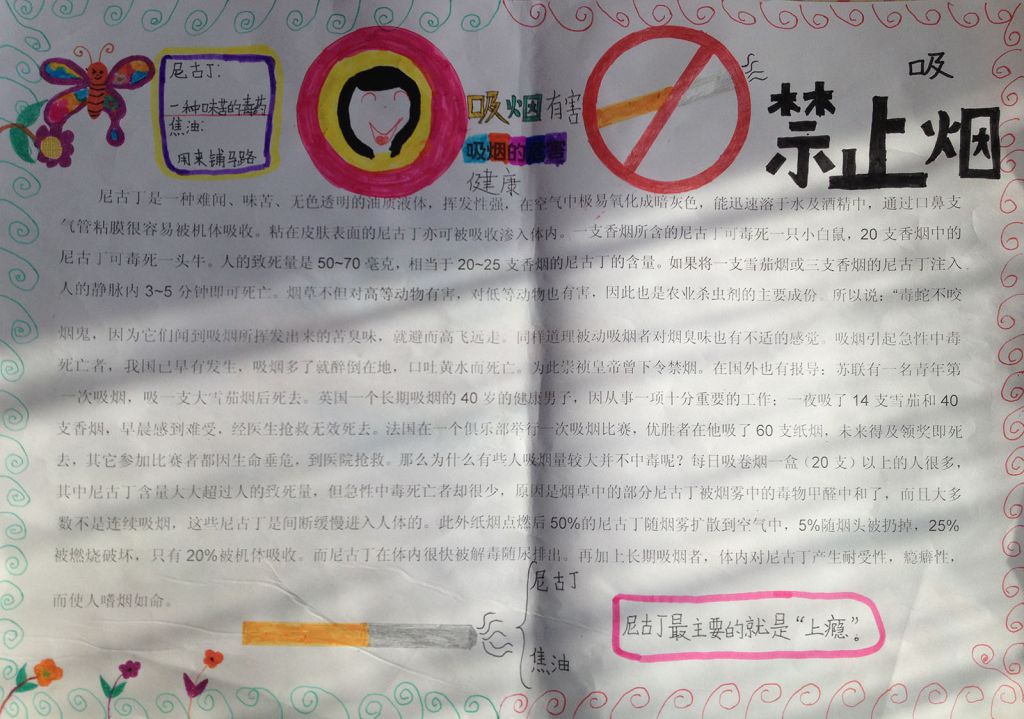 尼古丁:
一种味苦的毒药
焦油:
用来铺马路
吸烟有害
吸烟的危害
健康
吸
禁止烟
尼古丁是一种难闻、味苦、无色透明的油质液体，挥发性强，在空气中极易氧化成暗灰色，能迅速溶于水及酒精中，通过口鼻支
气管粘膜很容易被机体吸收。粘在皮肤表面的尼古丁亦可被吸收渗入体内。一支香烟所含的尼古丁可毒死一只小白鼠，20 支香烟中的
尼古丁可毒死一头牛。人的致死量是 50~70 毫克，相当于 20~25 支香烟的尼古丁的含量。如果将一支雪茄烟或三支香烟的尼古丁注入
人的静脉内 3~5 分钟即可死亡。烟草不但对高等动物有害，对低等动物也有害，因此也是农业杀虫剂的主要成份。所以说：“毒蛇不咬
烟鬼，因为它们闻到吸烟所挥发出来的苦臭味，就避而高飞远走。同样道理被动吸烟者对烟臭味也有不适的感觉。吸烟引起急性中毒
死亡者，我国已早有发生，吸烟多了就醉倒在地，口吐黄水而死亡。为此崇祯皇帝曾下令禁烟。在国外也有报导：苏联有一名青年第
一次吸烟，吸一支大雪茄烟后死去。英国一个长期吸烟的 40 岁的健康男子，因从事一项十分重要的工作；一夜吸了 14 支雪茄和 40
支香烟，早晨感到难受，经医生抢救无效死去。法国在一个俱乐部举行一次吸烟比赛，优胜者在他吸了 60 支纸烟，未来得及领奖即死
去，其它参加比赛者都因生命垂危，到医院抢救。那么为什么有些人吸烟量较大并不中毒呢？每日吸卷烟一盒（20 支）以上的人很多，
其中尼古丁含量大大超过人的致死量，但急性中毒死亡者却很少，原因是烟草中的部分尼古丁被烟雾中的毒物甲醛中和了，而且大多
数不是连续吸烟，这些尼古丁是间断缓慢进入人体的。此外纸烟点燃后 50%的尼古丁随烟雾扩散到空气中，5%随烟头被扔掉，25%
被燃烧破坏，只有 20%被机体吸收。而尼古丁在体内很快被解毒随尿排出。再加上长期吸烟者，体内对尼古丁产生耐受性，瘾癖性，
而使人嗜烟如命。
尼古丁
焦油
尼古丁最主要的就是“上瘾”。